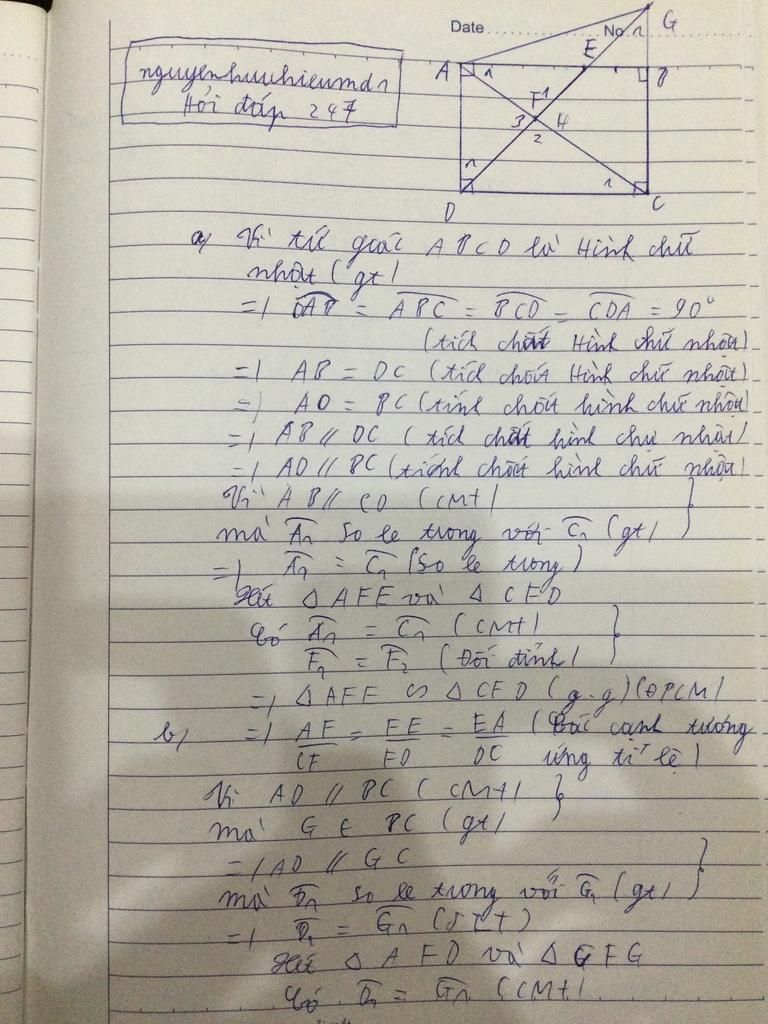 Date No
nguyenhuuhieumdn
Hỏi đáp 247
G
E
A 1 B
F 1
3 4
2
1 1
D C
a) Vì tứ giác ABCD là Hình chữ
nhật (gt)
=) DAB = ABC = BCD = CDA = 90°
(tích chất Hình chữ nhật)
=) AB = DC (tích chất Hình chữ nhật)
=) AD = BC (tính chất hình chữ nhật)
=) AB // DC (tích chất hình chữ nhật)
=) AD // BC (tính chất hình chữ nhật)
Vì AB // CD (CMT)
mà A1 so le trong với C1 (gt)
=) A1 = C1 (so le trong)
Xét Δ AFE và Δ CFD
Có A1 = C1 (CMT)
F1 = F2 (Đối đỉnh)
=) Δ AFE ∽ Δ CFD (g.g) (ĐPCM)
b) =) AF/CF = FE/FD = EA/DC (Các cạnh tương
ứng tỉ lệ)
Vì AD // BC (CMT)
mà G ∈ BC (gt)
=) AD // GC
mà D1 so le trong với G1 (gt)
=) D1 = G1 (SLT)
Xét Δ AFD và Δ CFG
Có D1 = G1 (CMT)